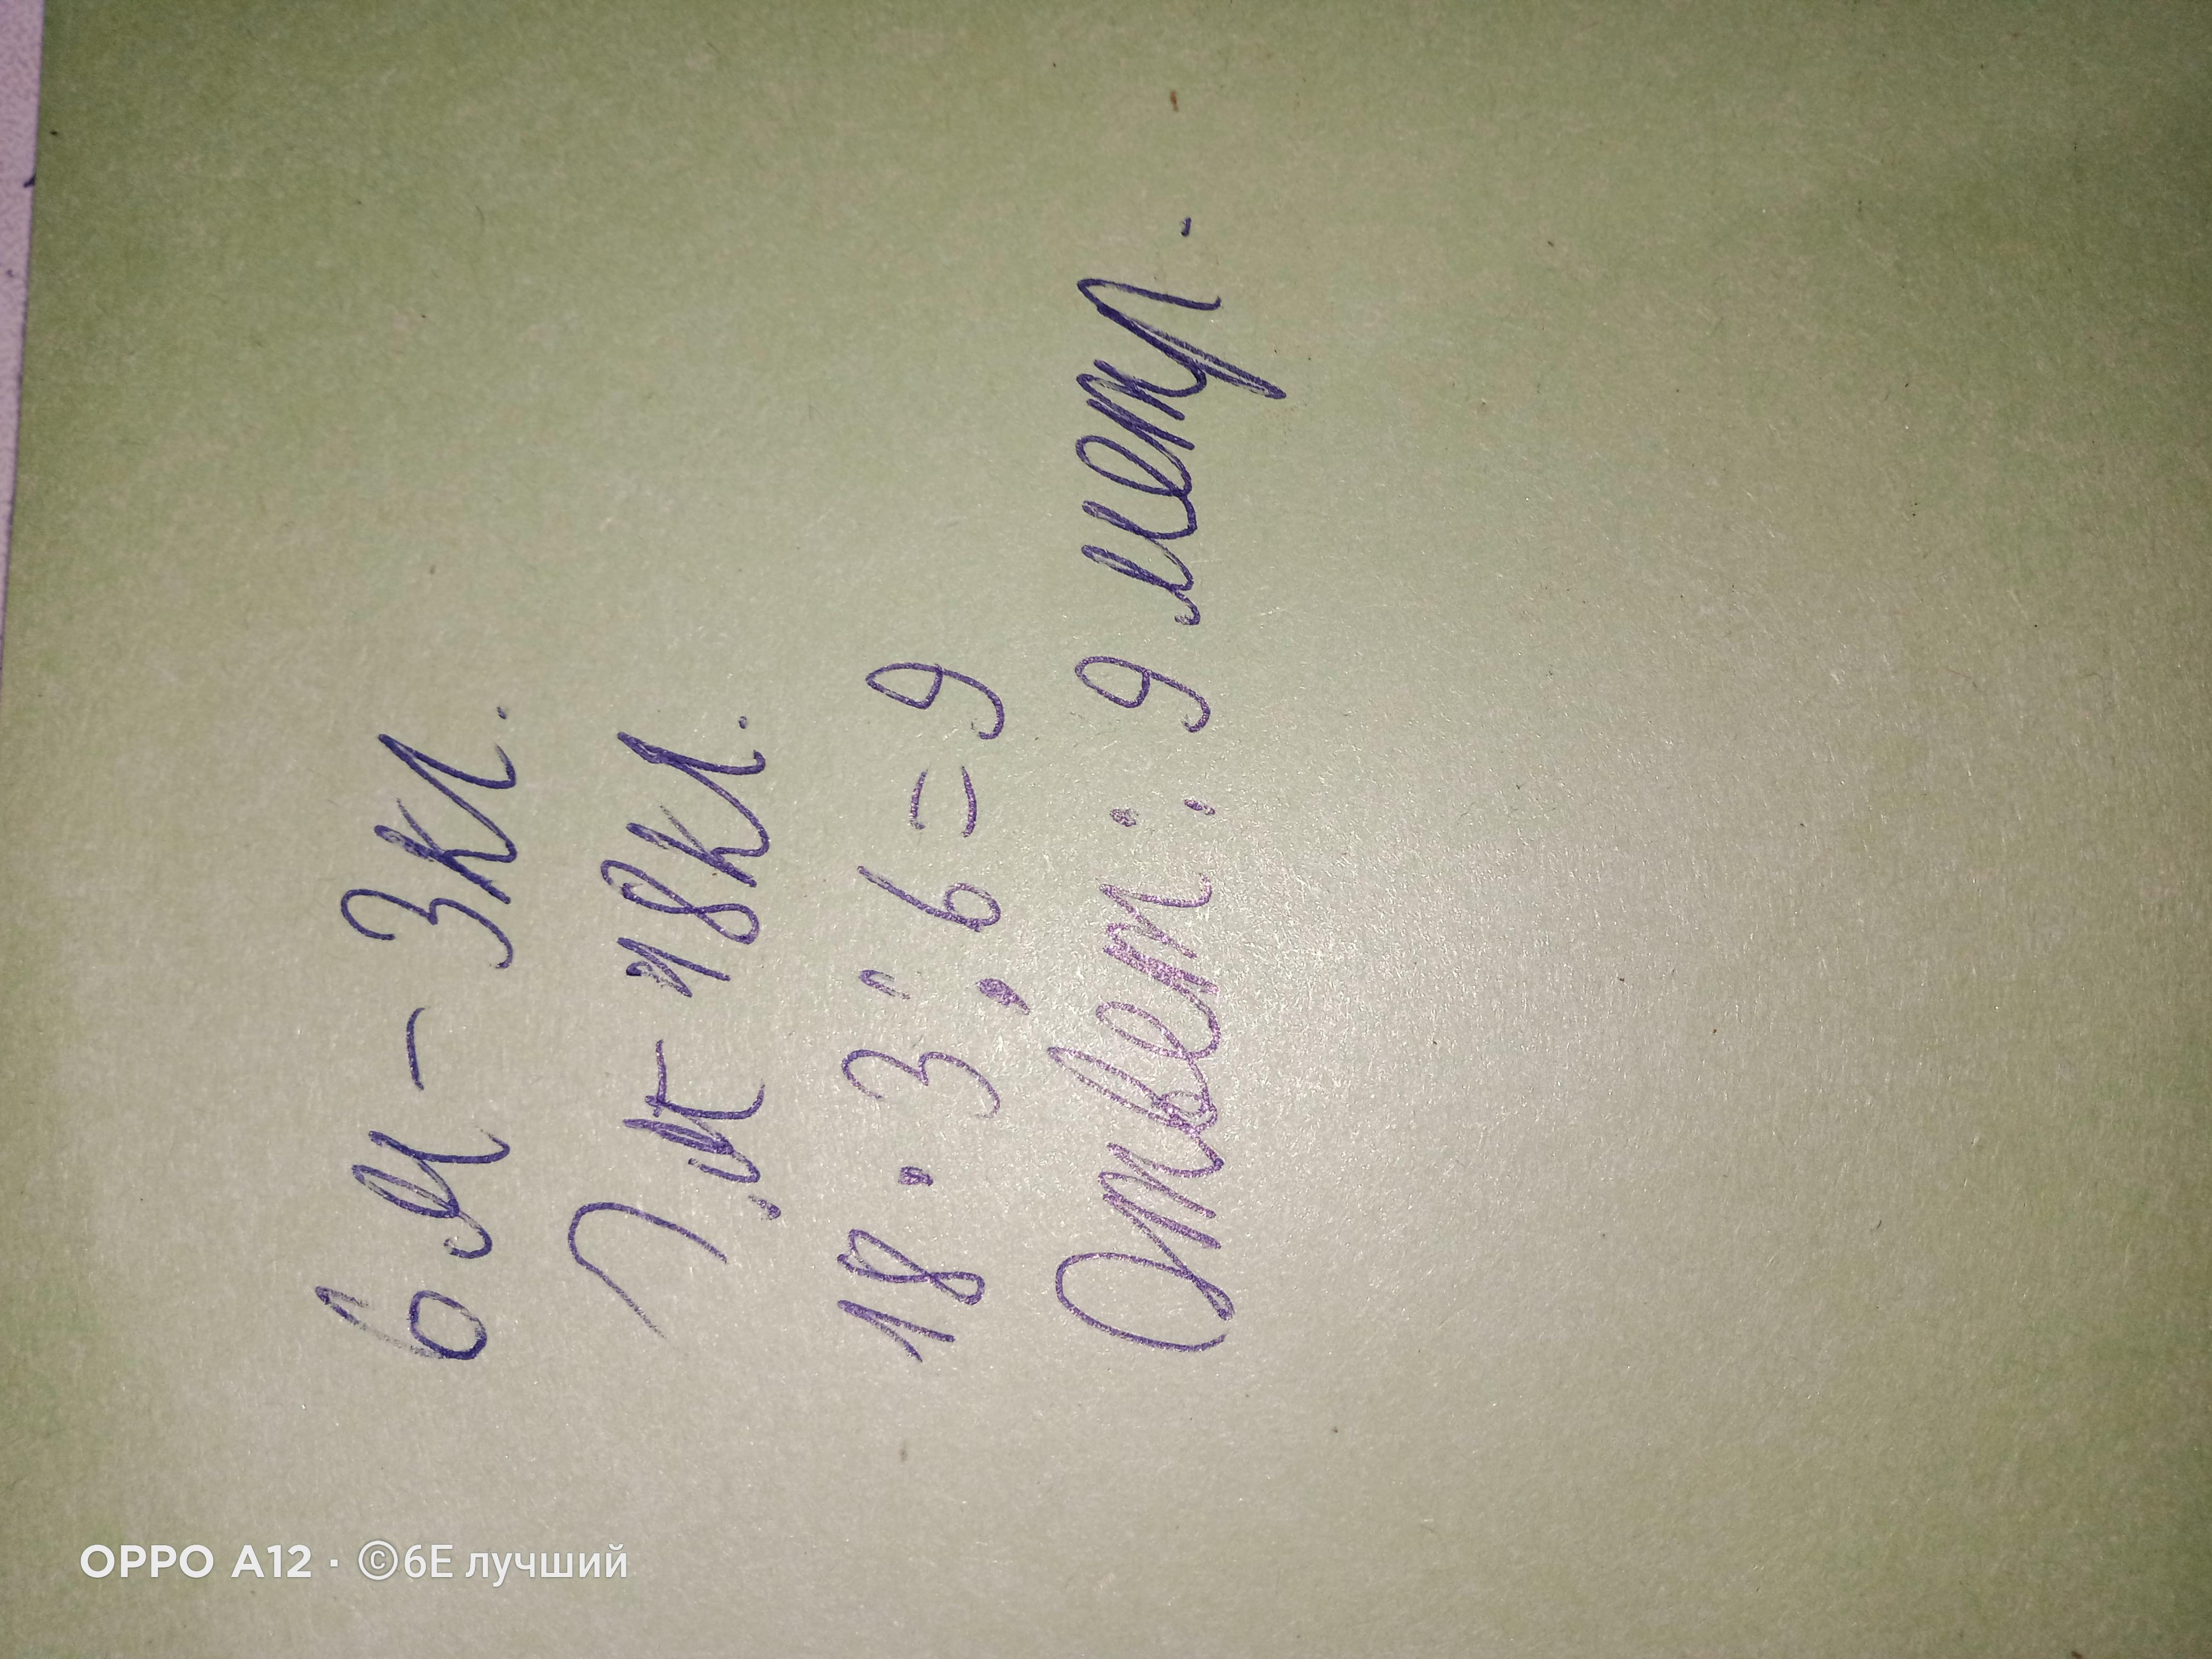 6м - 3кл.
?м - 18кл.
18 : 3 : 6 = 9
Ответ: 9 метр.
OPPO A12 · ©6E лучший